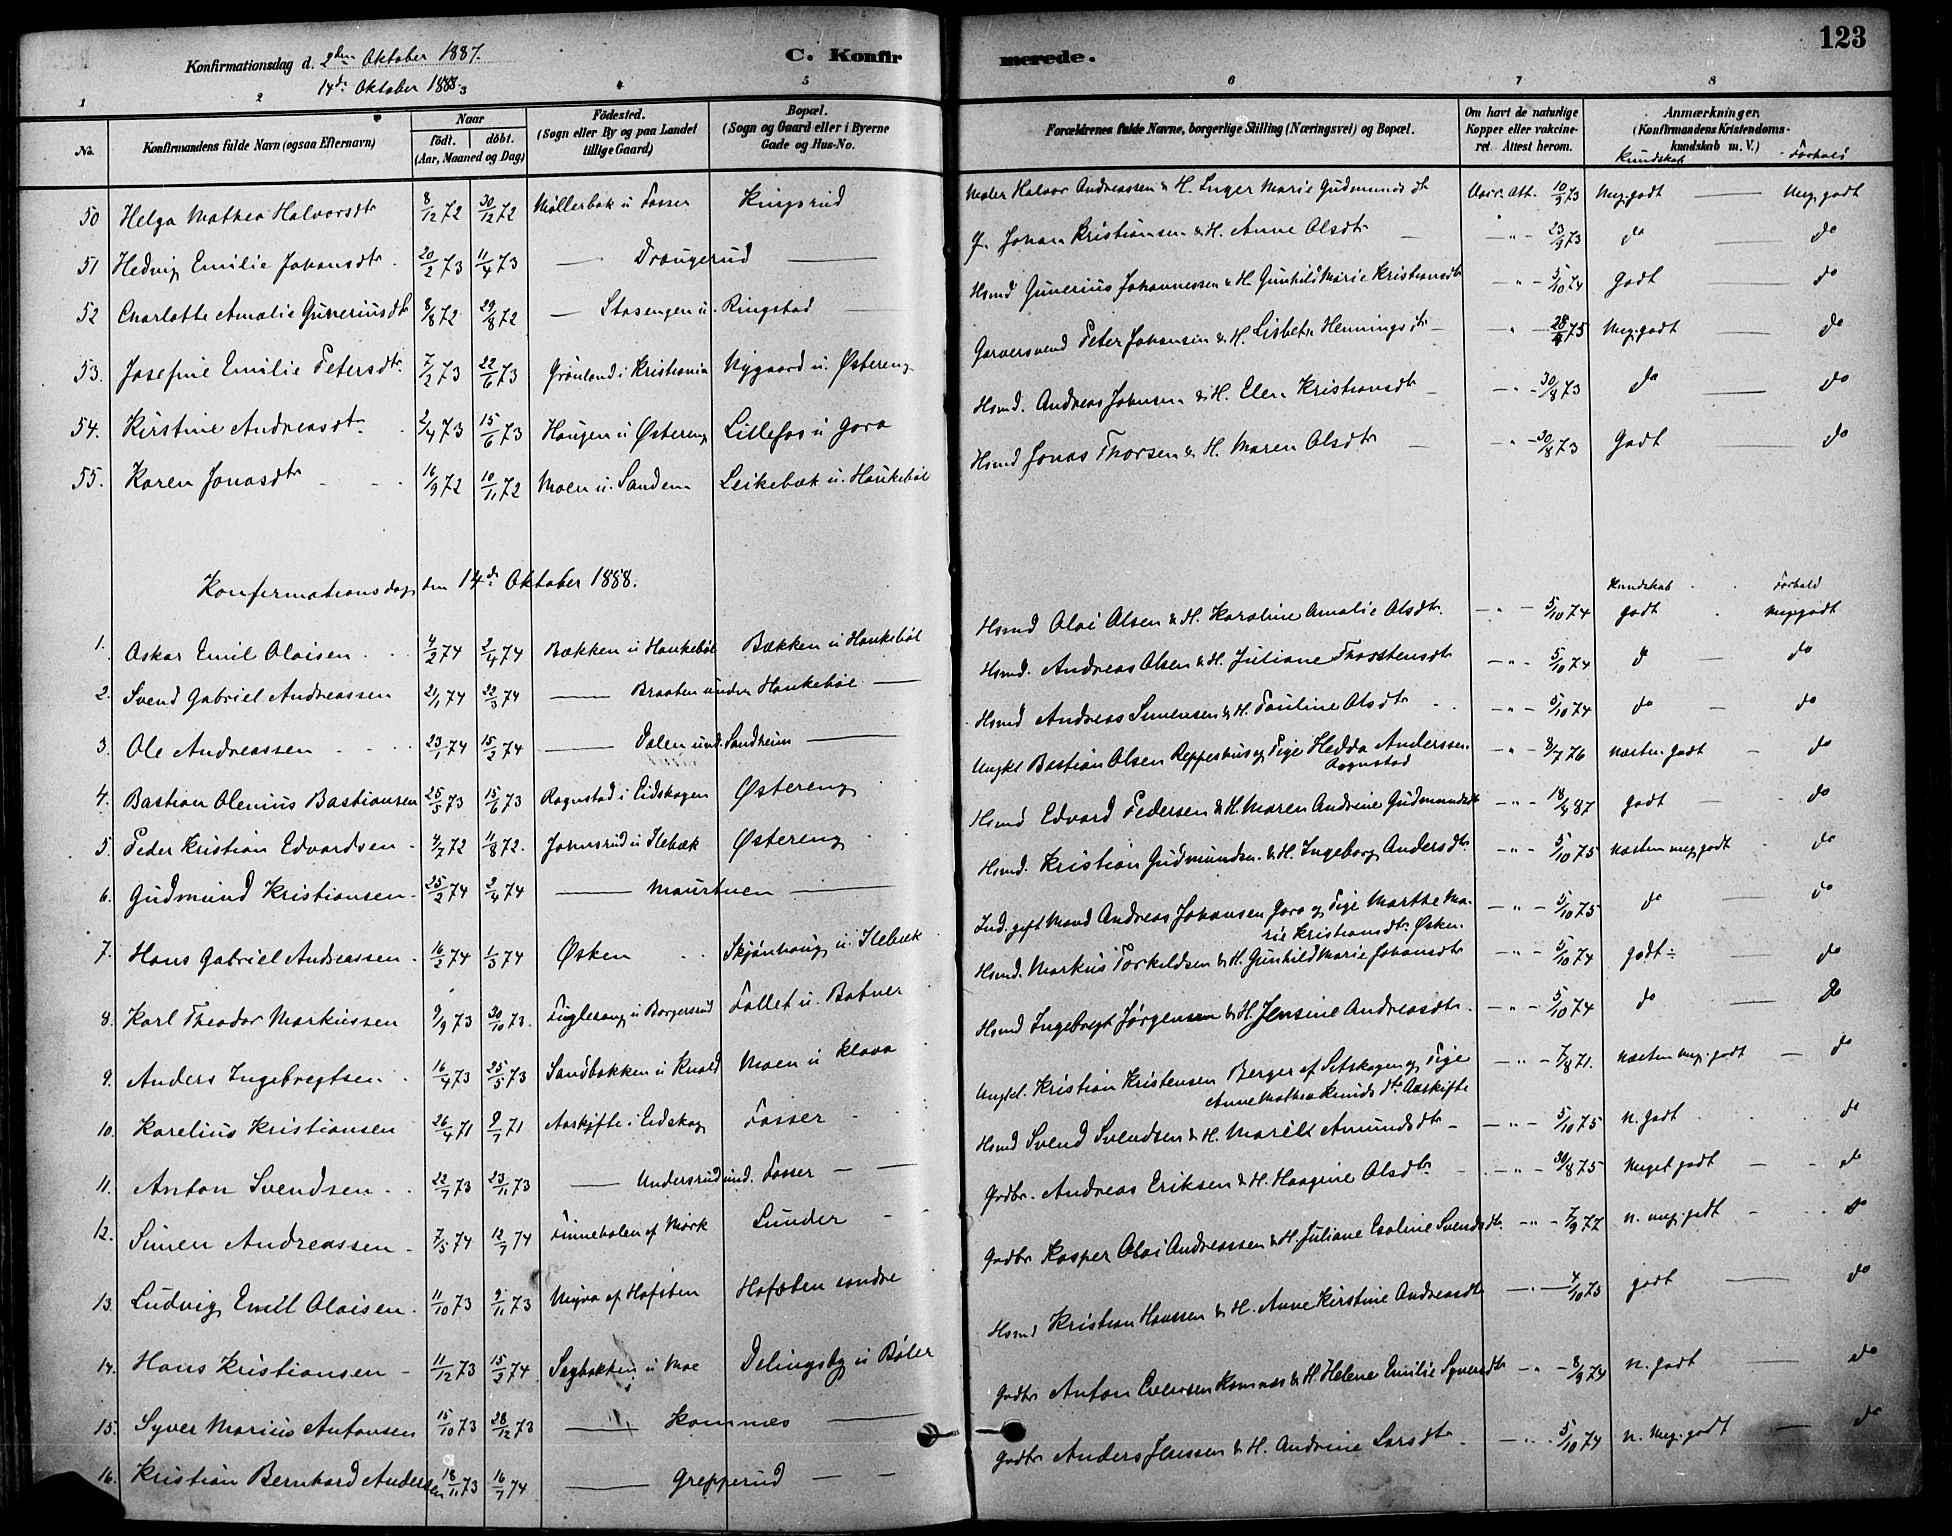 123
Konfirmationsdag d. 2den Oktober 1887. C. Konfirmerede.
14de Oktober 1888
1 2 4 5 6 7 8
No. Konfirmandens fulde Navn (ogsaa Efternavn) Naar født. døbt. (Aar, Maaned og Dag) Fødested. (Sogn eller By og paa Landet tillige Gaard) Bopæl. (Sogn og Gaard eller i Byerne Gade og Hus-No. Forældrenes fulde Navne, borgerlige Stilling (Næringsvei) og Bopæl. Om havt de naturlige Kopper eller vakcineret. Attest herom. Anmærkninger. (Konfirmandens Kristendomskundskab m. V.)
Kundskab Forhold
50 Helga Mathea Halvorsdtr 8/12 72 30/12 72 Møllerbak u Fosser Kingsrud Maler Halvor Andreassen & H. Inger Marie Gudmundsdtr Vacc. Att. 10/9 73 Meg. godt — Meg. godt
51 Hedvig Emilie Johansdtr 20/2 73 11/4 73 — Draugerud — G. Johan Kristiansen & H. Anne Olsdtr — " — 23/9 73 do do
52 Charlotte Amalie Guneriusdtr 8/8 72 29/8 72 — Stasengen u. Ringstad — Hsmd Gunerius Johannessen & H. Gunhild Marie Kristiansdtr — " — 5/10 74 godt — do
53. Josefine Emilie Petersdtr. 7/2 73 22/6 73 Grønland i Kristiania Nygaard u. Østereng Garversvend Peter Johansen & H. Lisbeth Henningsdtr — " — 28/9 75 Meg. godt — do
54. Kirstine Andreasdtr 2/4 73 15/6 73 Haugen u Østereng Lillefos u Gara Hsmd. Andreas Johnsen & H. Elen Kristiansdtr — " — 30/8 73 do — do
55. Karen Jonasdtr 16/9 72 10/11 72 Moen u. Sandem Leikebæk u. Haukebøl Hsmd Jonas Thorsen & H. Maren Olsdtr — " — 30/8 73 Godt — do
Konfirmationsdag den 14de Oktober 1888. Kundskab Forhold
1. Oskar Emil Olaisen 4/2 74 2/4 74 Bækken u Haukebøl Bækken u Haukebøl Hsmd Olai Olsen & H. Karoline Amalie Olsdtr. — " — 5/10 74 godt Meg. godt
2. Svend Gabriel Andreassen 21/1 74 22/3 74 — Braaten under Haukebøl — Hsmd. Andreas Olsen & H. Juliane Thorstensdtr — " — 5/10 74 do — do
3. Ole Andreassen 23/1 74 15/2 74 — Dalen und. Sandheim — Hsmd Andreas Simensen & H. Pauline Olsdtr — " — 5/10 74 do — do
4. Bastian Olenius Bastiansen 25/5 73 15/6 73 Rognstad i Eidskogen Østereng Ungkl Bastian Olsen Reppeshus og Pige Hedda Anderssen Rognstad — " — 8/7 76 Næsten godt — do
5. Peder Kristian Edvardsen 4/7 72 11/8 72. Johnsrud u Ilebæk Østereng Hsmd Edvard Pedersen & H. Maren Andrine Gudmundsdtr — " — 18/4 87 godt — do
6. Gudmund Kristiansen 25/2 74 2/4 74 — Maurtuen — Hsmd. Kristian Gudmundsen & H. Ingeborg Andersdtr. — " — 5/10 75 Næsten meg. godt do
7. Hans Gabriel Andreassen 16/2 74 1/3 74 Øsken Skjønhaug u. Ilebæk Ind. gift Mand Andreas Johansen Gara og Pige Marthe Marie Kristiansdtr. Øsken. — " — 5/10 75 do do
8. Karl Theodor Markussen 9/9 73 30/10 73. Fuglesang u Borgersrud Fallet u. Botner Hsmd. Markus Torkeldsen & H. Gunhild Marie Johansdtr — " — 5/10 74 godt ÷ do
9. Anders Ingebregtsen 16/4 73 25/5 73 Sandbakken u Knold Moen u Klova Hsmd Ingebregt Jørgensen & H. Jensine Andreasdtr. — " — 5/10 74 do — do
10. Karelius Kristiansen 26/4 71 9/7 71 Aarkifte i Eidskog Fosser Ungkl. Kristian Kristensen Berger af Setskogen og Pige Anne Mathea Knudsdtr. Aaskifte — " — 7/8 71. Næsten meg. godt — do
11. Anton Svendsen 22/7 73 23/11 73 — Undersrud und. Fosser — Hsmd Svend Svendsen & H. Marit Amundsdtr — " — 5/10 75 N. godt do
12. Simen Andreassen 7/5 74 12/7 74 Finneholen af Mørk Lunder Gdbr. Andreas Eriksen & H. Haagine Olsdtr. — " — 30/8 75 Meget godt — do
13. Ludvig Emil Olaisen 11/10 73 9/11 73 Myra af Hofsten Hofsten søndre Gdbr Kasper Olai Andreassen & H. Juliane Eoline Svendsdtr. — " — 7/9 77 N. meg. godt — do
14. Hans Kristiansen 11/12 73 15/3 74 Sagbakken u Moe Delingsby u Bøler Hsmd Kristian Hanssen & H. Anne Kirstine Andreasdtr — " — 4/10 75 godt — do
15. Syver Marius Antonsen 15/10 73 28/12 73 — Komnes — Gdbr Anton Evensen Komnes & H. Helene Emilie Syversdtr — " — 8/9 74 N. godt — do
16. Kristian Bernhard Andersen 18/11 73 16/7 74 — Grepperud — Gdbr Anders Jenssen & H. Andrine Larsdtr — " — 5/10 74 N. meg. godt — do